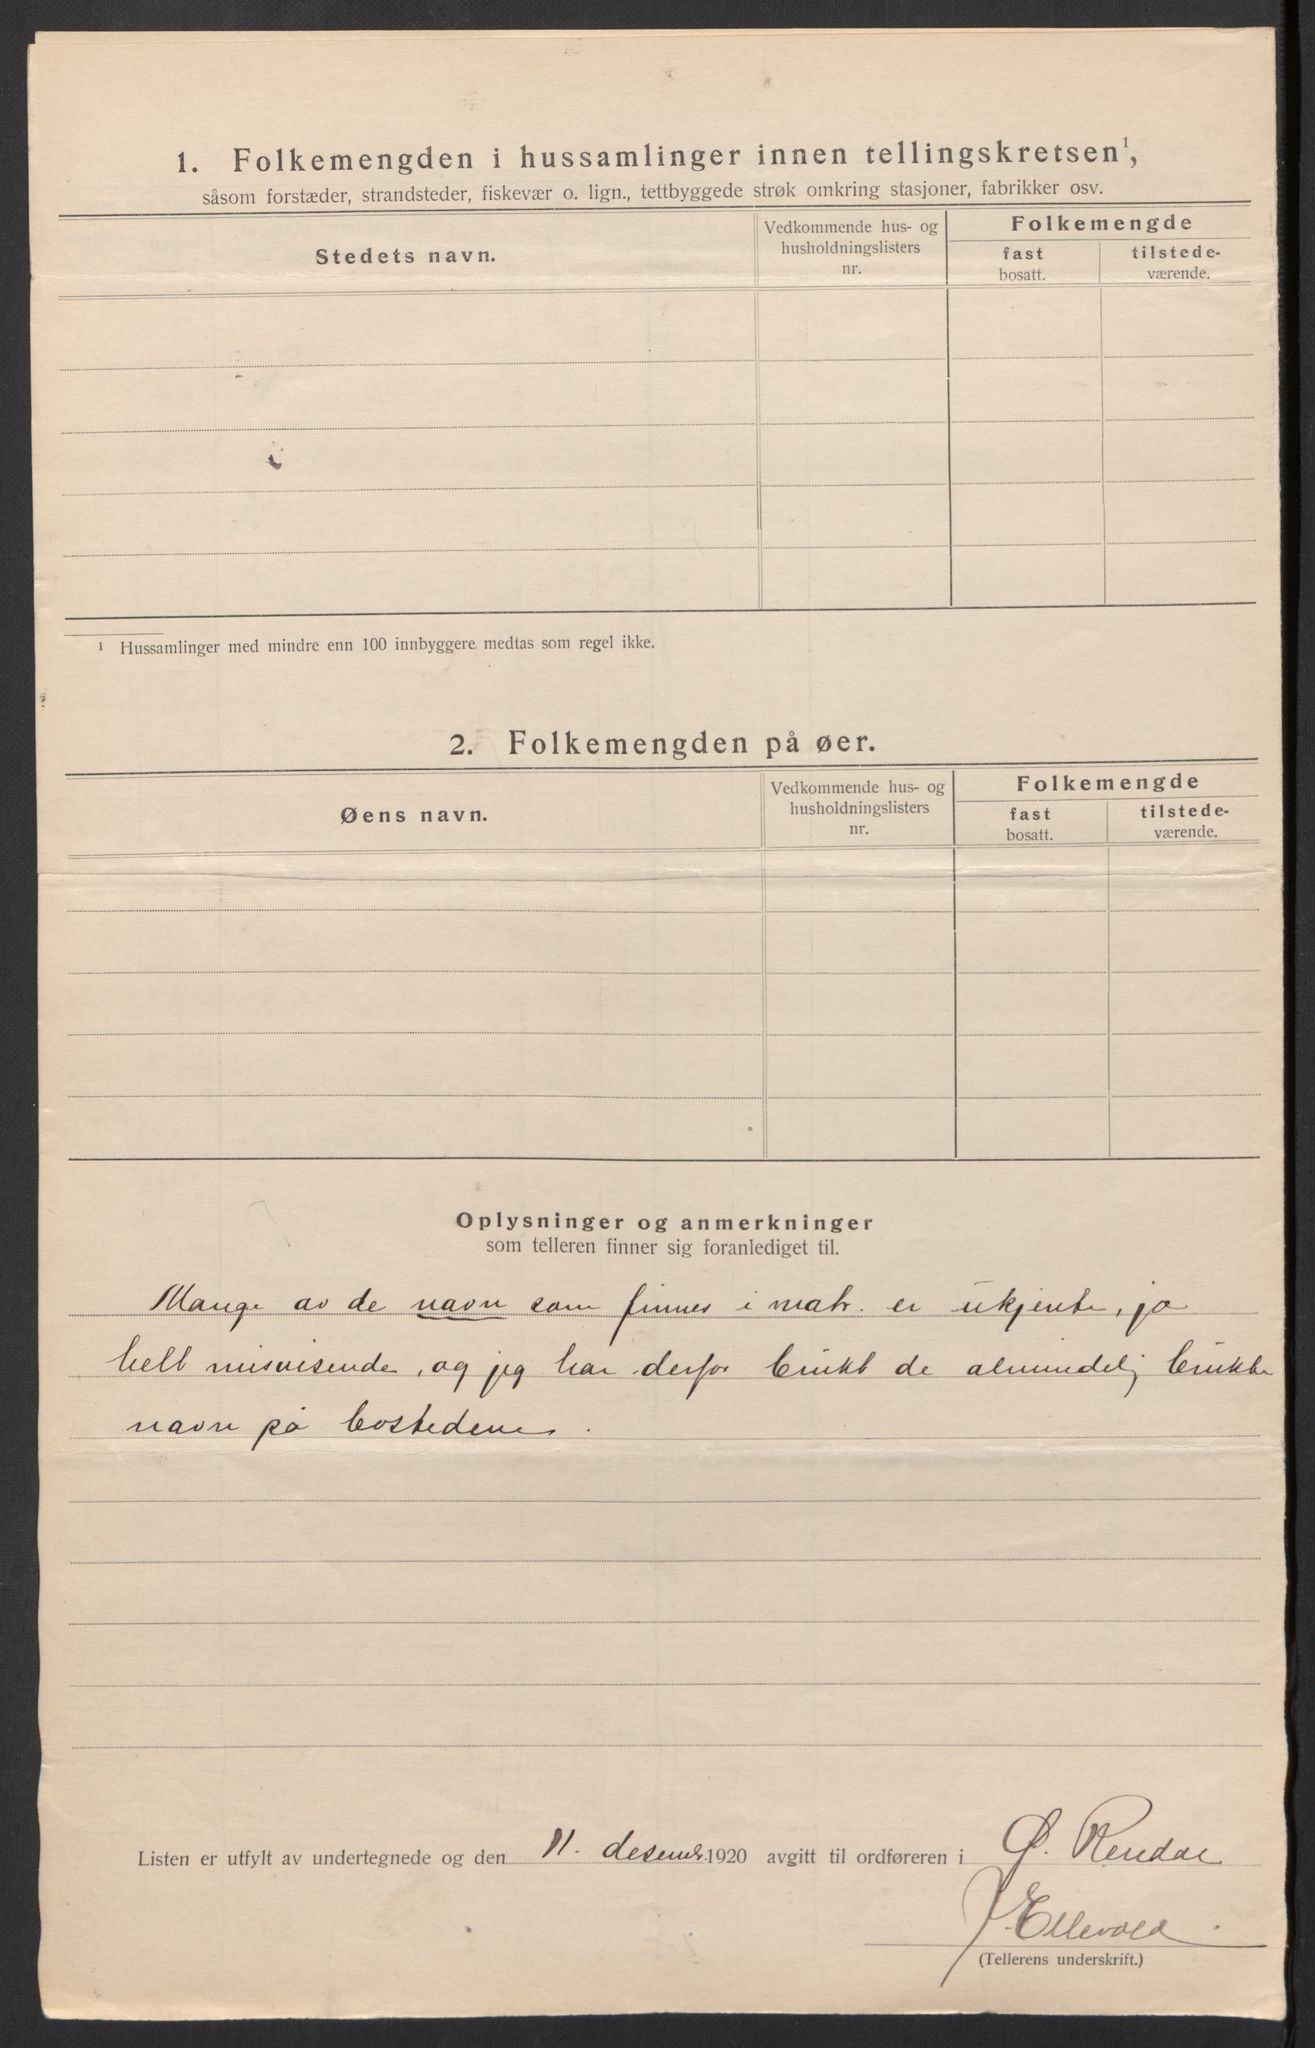 1. Folkemengden i hussamlinger innen tellingskretsen¹,
såsom forstæder, strandsteder, fiskevær o. lign., tettbyggede strøk omkring stasjoner, fabrikker osv.
Stedets navn.
Vedkommende hus- og
husholdningslisters
nr.
Folkemengde
fast
bosatt.
tilstede-
værende.
¹ Hussamlinger med mindre enn 100 innbyggere medtas som regel ikke.
2. Folkemengden på øer.
Øens navn.
Vedkommende hus- og
husholdningslisters
nr.
Folkemengde
fast
bosatt.
tilstede-
værende.
Oplysninger og anmerkninger
som telleren finner sig foranlediget til.
Mange av de navn som finnes i matr. er ukjente, ja
helt misvisende, og jeg har derfor brukt de almindelig brukte
navn på bostedene.
Listen er utfylt av undertegnede og den 11. desembr. 1920 avgitt til ordføreren i Ø. Rendal
J Ellevold
(Tellerens underskrift.)